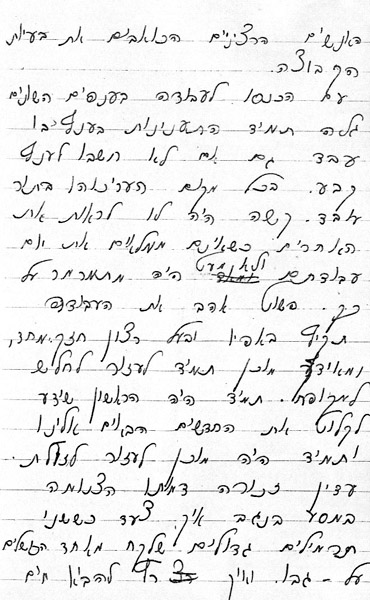 האנשים הרציניים הכואבים את בעיות
הקבוצה.
עם הכנסו לעבודה בענפים השונים
גלה תמיד התענינות בענף בו
עבד גם אם לא חשבו לענף
קבע. בכל מקום העריכוהו בתור
עובד. קשה היה לו לראות את
האחרים כשאינם ממלאים את יום
עבודתם ולא מעט היה מתמרמר על
כך. פשוט אהב את העבודה
תקיף באפיו ובעל רצון חזק מחד,
ומאידך מוכן תמיד לעזור לחליש
למקופח. תמיד היה הראשון שידע
לקלוט את החדשים הבאים אלינו
ותמיד היה מוכן לעזור לזולת.
עדין זכורה דמותו הצנומה
במסע בנגב איך צעד כששני
תרמילים גדולים שלקח מאחד הנחשלים
על-גבו. ואיך רץ להביא מים